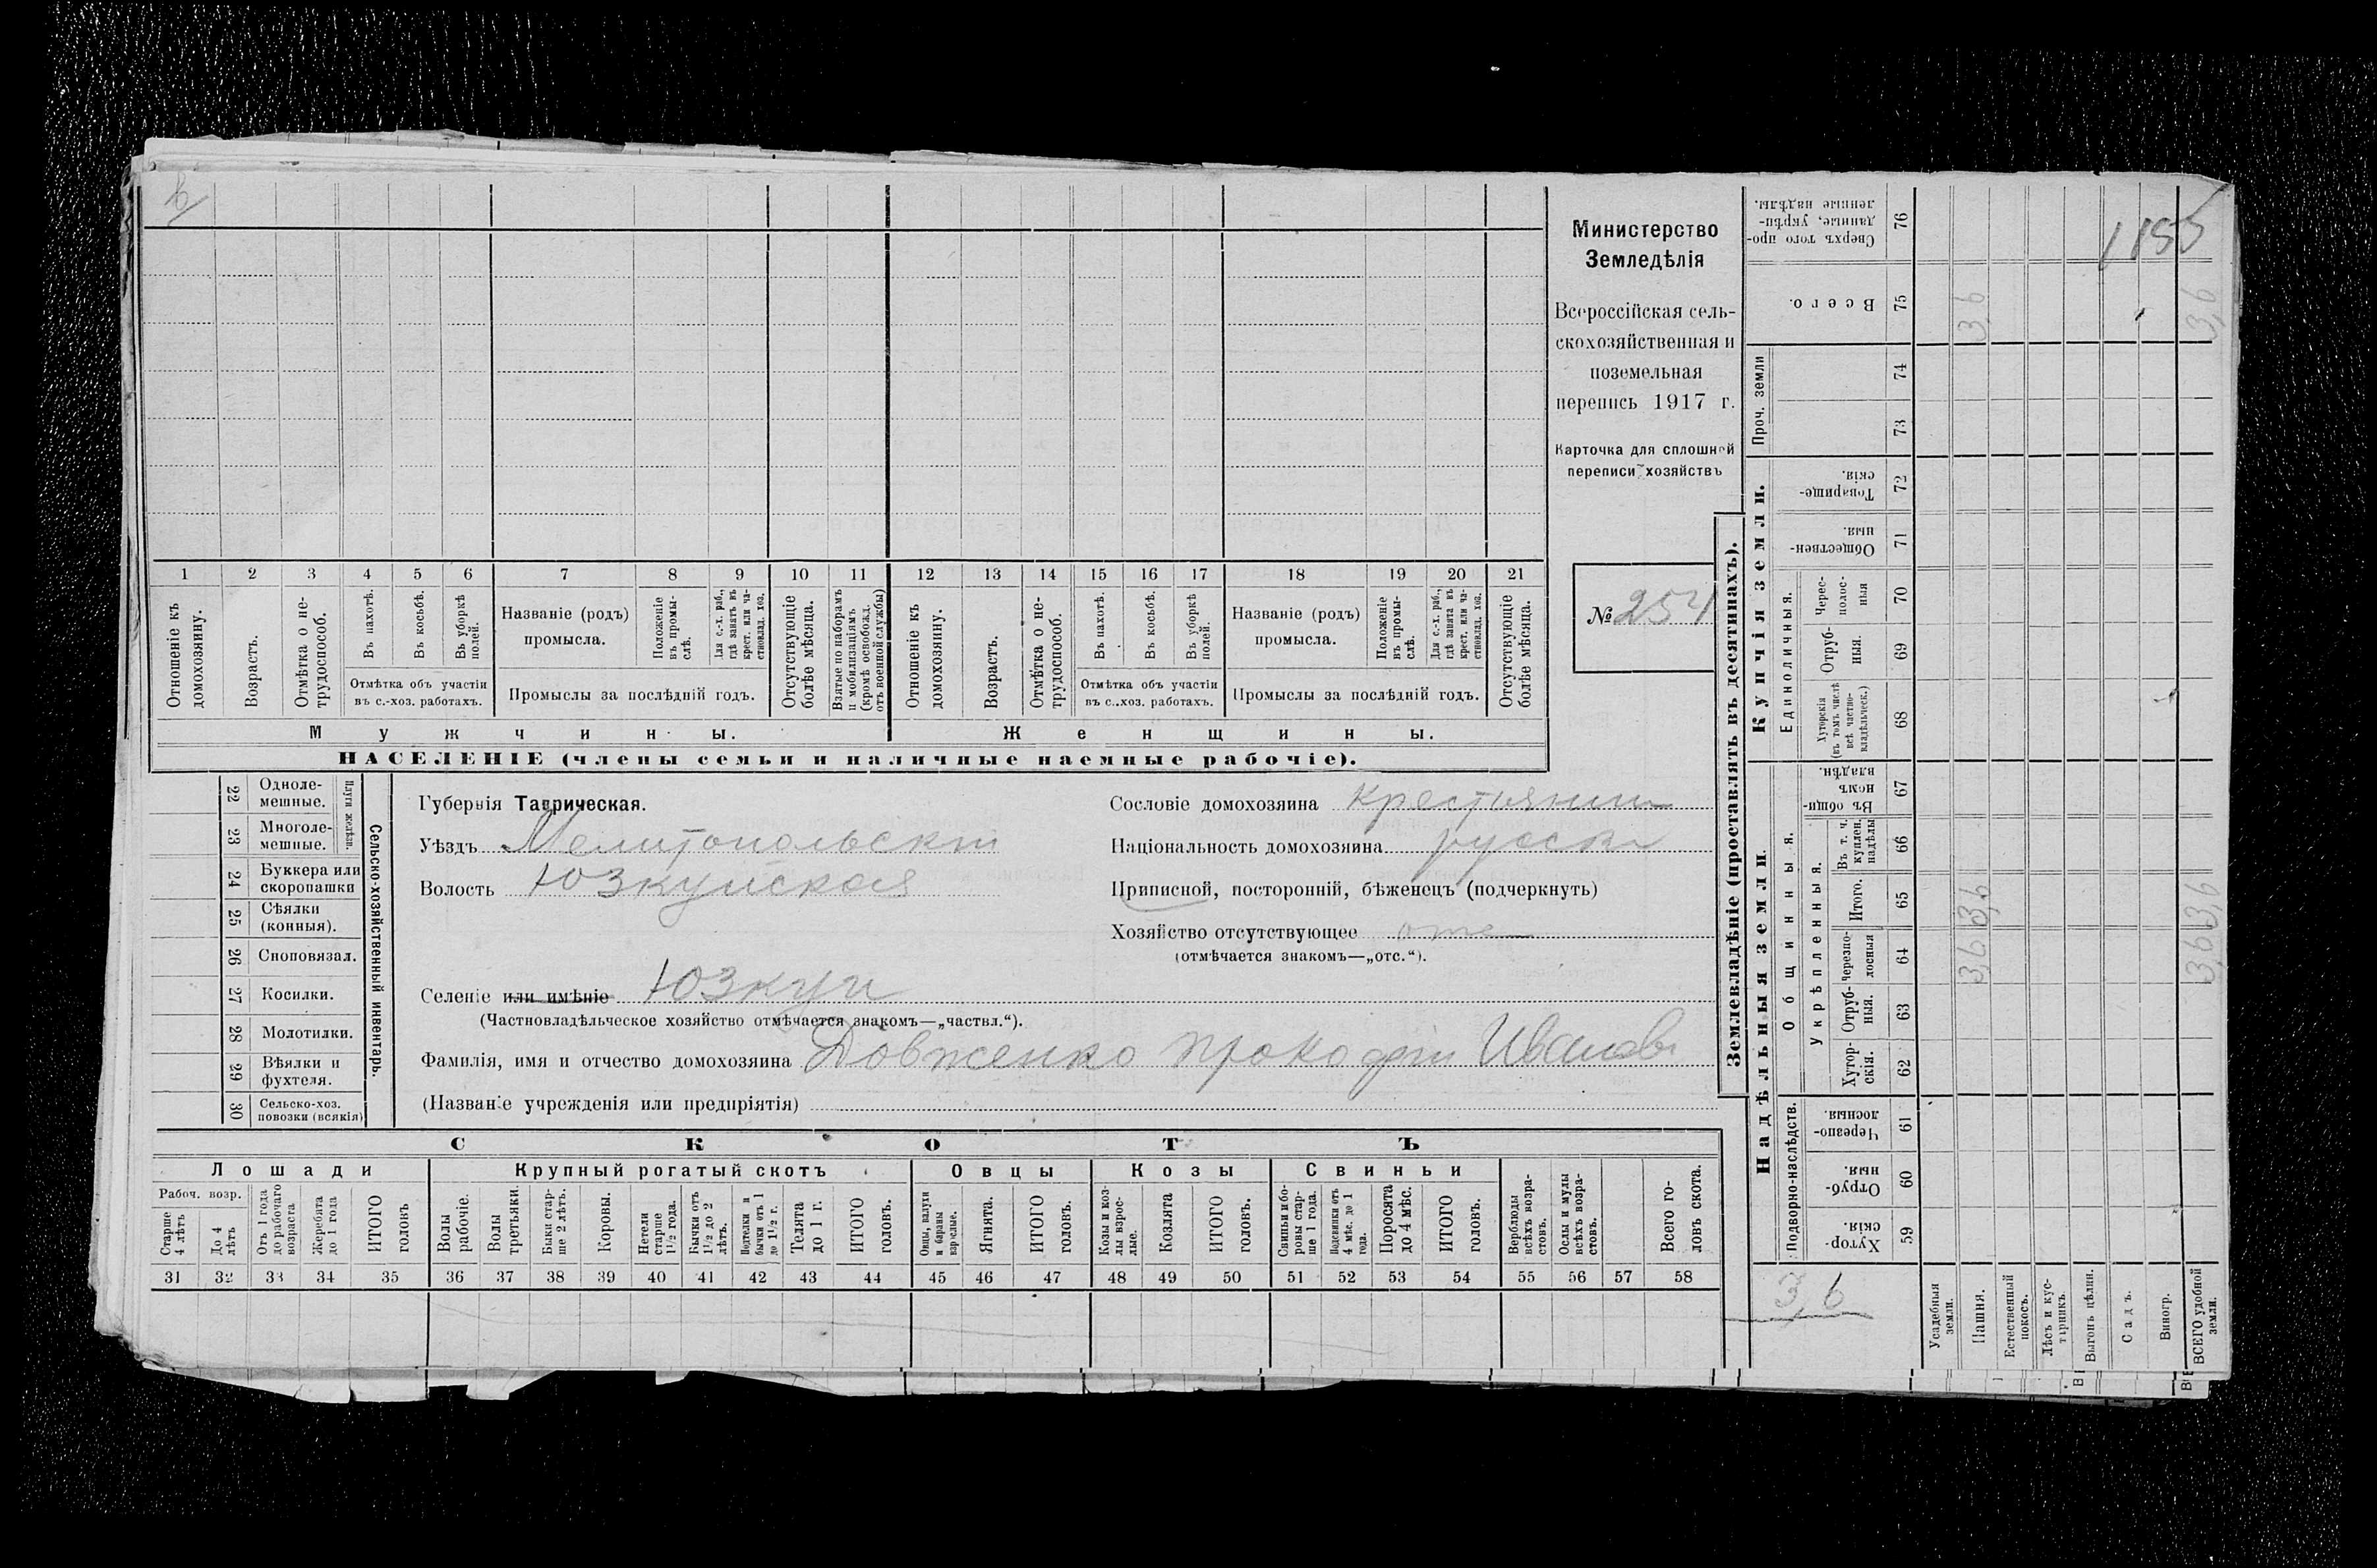 1155
Министерство
Земледѣлія
Всероссійская сель-
скохозяйственная и
поземельная
перепись 1917 г.
Карточка для сплошной
переписи хозяйствъ
№ 254
1 2 3 4 5 6 7 8 9 10 11 12 13 14 15 16 17 18 19 20 21
Отношеніе къ домохозяину.
Возрастъ.
Отмѣтка о не-трудоспособ.
Въ пахотѣ.
Въ косьбѣ.
Въ уборкѣ полей.
Отмѣтка объ участіи
въ с.-хоз. работахъ.
Названіе (родъ)
промысла.
Положеніе въ промы-слѣ.
Для с.-х. раб., гдѣ занятъ въ крест. или ча-стновлад. хоз.
Промыслы за послѣдній годъ.
Отсутствующіе болѣе мѣсяца.
Взятые по наборамъ и мобилизаціямъ (кромѣ освобожд. отъ военной службы)
Отношеніе къ домохозяину.
Возрастъ.
Отмѣтка о не-трудоспособ.
Въ пахотѣ.
Въ косьбѣ.
Въ уборкѣ полей.
Отмѣтка объ участіи
въ с.-хоз. работахъ.
Названіе (родъ)
промысла.
Положеніе въ промы-слѣ.
Для с.-х. раб., гдѣ занята въ крест. или ча-стновлад. хоз.
Промыслы за послѣдній годъ.
Отсутствующіе болѣе мѣсяца.
Мужчины.
Женщины.
НАСЕЛЕНІЕ (члены семьи и наличные наемные рабочіе).
Сельско-хозяйственный инвентарь.
Плуги желѣзн.
22 Одноле-мешные.
23 Многоле-мешные.
24 Буккера или скоропашки
25 Сѣялки (конныя).
26 Сноповязал.
27 Косилки.
28 Молотилки.
29 Вѣялки и фухтеля.
30 Сельско-хоз. повозки (всякія)
Губернія Таврическая.
Уѣздъ Мелитопольскій
Волость Юзкуйская
Селеніе или имѣніе Юзкуи
(Частновладѣльческое хозяйство отмѣчается знакомъ—„частвл.“).
Сословіе домохозяина крестьянин
Національность домохозяина русски
Приписной, посторонній, бѣженецъ (подчеркнуть)
Хозяйство отсутствующее отс
(отмѣчается знакомъ—„отс.“).
Фамилія, имя и отчество домохозяина Довженко Прокофій Иванов
(Названіе учрежденія или предпріятія)
СКОТЪ
Лошади
Крупный рогатый скотъ
Овцы
Козы
Свиньи
Рабоч. возр.
Старше 4 лѣтъ
До 4 лѣтъ
Отъ 1 года до рабочаго возраста
Жеребята до 1 года
ИТОГО головъ
Волы рабочіе.
Волы третьяки.
Быки стар-ше 2 лѣтъ.
Коровы.
Нетели старше 1 1/2 года.
Бычки отъ 1 1/2 до 2 лѣтъ.
Подтелки и бычки отъ 1 до 1 1/2 г.
Телята до 1 г.
ИТОГО головъ.
Овцы, валухи и бараны взрослые.
Ягнята.
ИТОГО головъ.
Козы и коз-лы взрос-лые.
Козлята
ИТОГО головъ.
Свиньи и бо-ровы стар-ше 1 года.
Подсвинки отъ 4 мѣс. до 1 года.
Поросята до 4 мѣс.
ИТОГО головъ.
Верблюды всѣхъ возра-стовъ.
Ослы и мулы всѣхъ возра-стовъ.
Всего го-ловъ скота.
31 32 33 34 35 36 37 38 39 40 41 42 43 44 45 46 47 48 49 50 51 52 53 54 55 56 57 58
Землевладѣніе (проставлять въ десятинахъ).
Купчія земли.
Надѣльныя земли.
Сверхъ того про-данные, укрѣп-ленные надѣлы. 76
Всего. 75 3,6 3,6
Проч. земли
74
73
Товарище-скія. 72
Обществен-ныя. 71
Единоличныя.
Черес-полос-ныя 70
Отруб-ныя. 69
Хуторскія (въ томъ числѣ всѣ частно-владѣльческ.) 68
Общинныя.
Въ общи-номъ владѣн. 67
Укрѣпленныя.
Въ т. ч. куплен. надѣлы 66
Итого. 65 3,6 3,6
Черезпо-лосныя 64 3,6 3,6
Отруб-ныя. 63
Хутор-скія. 62
Подворно-наслѣдств.
Черезпо-лосныя 61
Отруб-ныя. 60
Хутор-скія. 59
3,6
Усадебныя земли.
Пашня.
Естественный покосъ.
Лѣсъ и кус-тарникъ.
Выгонъ цѣлин.
Садъ.
Виногр.
ВСЕГО удобной земли.